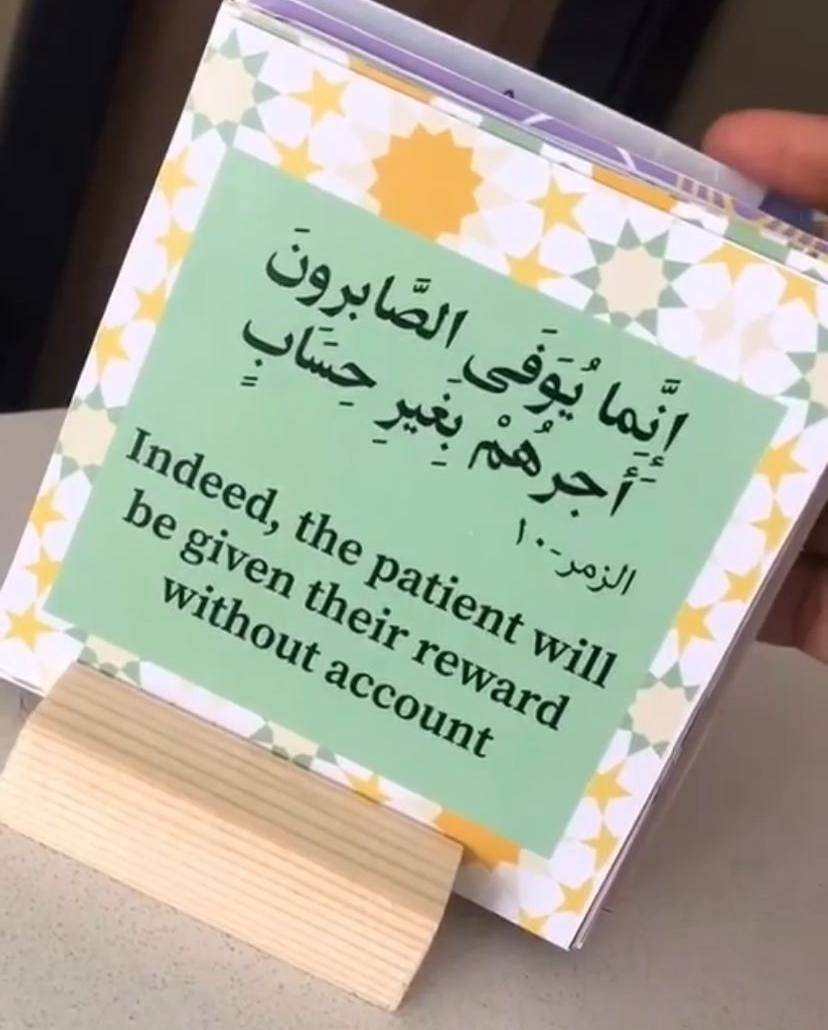 إِنَّمَا يُوَفَى الصَّابرونَ
أَجرهُمْ بِغَيرِ حِسَابٍ
الزمر-١٠
Indeed, the patient will
be given their reward
without account